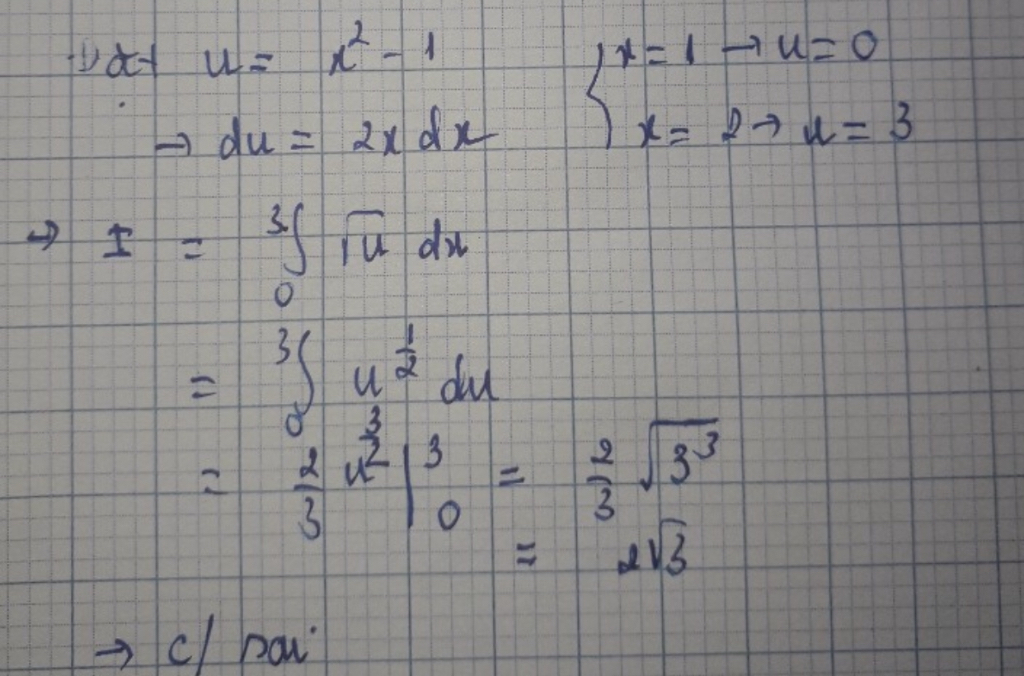 Đặt u = x² - 1 { x = 1 → u = 0
→ du = 2x dx { x = 2 → u = 3
→ I = ∫₀³ √u dx
= ∫₀³ u^(1/2) du
= 2/3 u^(3/2) |₀³ = 2/3 √(3³)
= 2√3
→ c/ sai